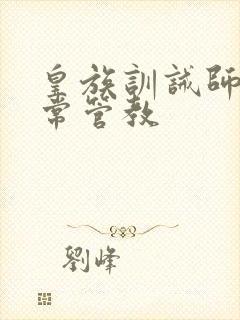 皇族訓誡師
常管教
劉峰